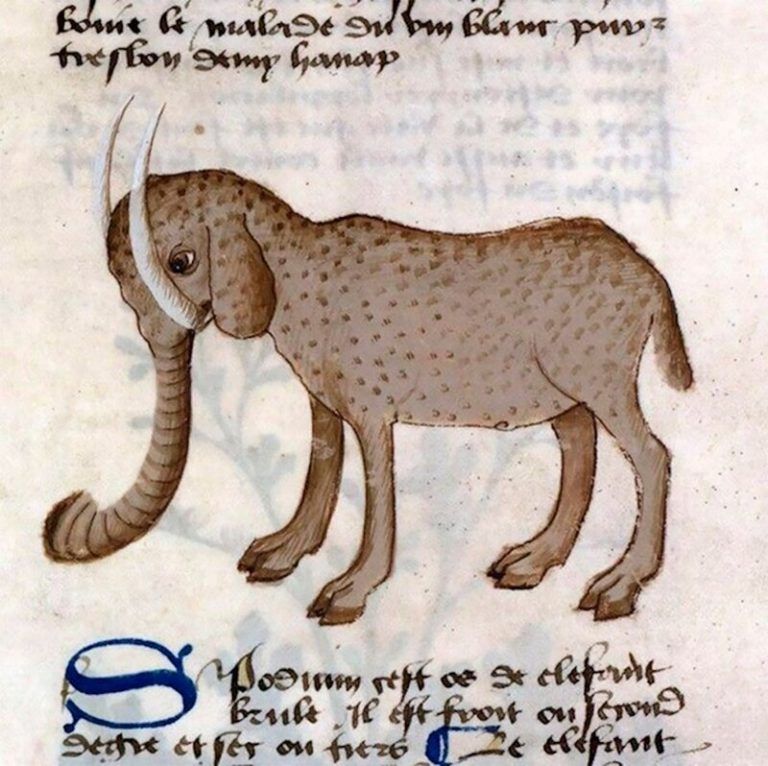 boive le malade du vin blanc puv-
tresbon demy hanap
Spodium cest os de elefant
brule . Il est froit ou second
degre et sec ou tiers Le elefant